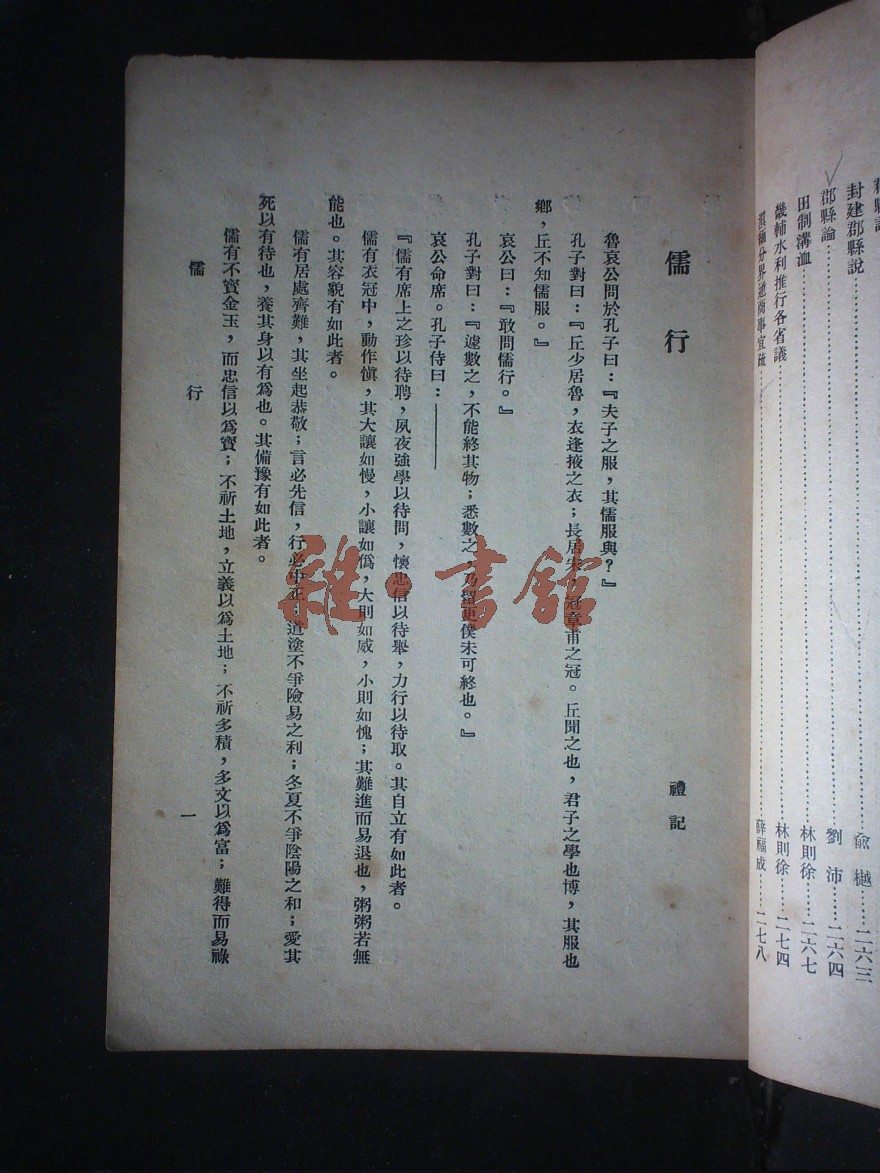 釋縣論
封建郡縣說……俞樾……二六三
郡縣論……劉沛……二六四
田制溝洫……林則徐……二六七
畿輔水利推行各省議……林則徐……二七四
滇緬分界通商事宜疏……薛福成……二七八
儒行
禮記
魯哀公問於孔子曰:『夫子之服,其儒服與?』
孔子對曰:『丘少居魯,衣逢掖之衣;長居宋,冠章甫之冠。丘聞之也,君子之學也博,其服也
鄉,丘不知儒服。』
哀公曰:『敢問儒行。』
孔子對曰:『遽數之,不能終其物;悉數之,乃留更僕未可終也。』
哀公命席。孔子侍曰:——
『儒有席上之珍以待聘,夙夜強學以待問,懷忠信以待舉,力行以待取。其自立有如此者。
儒有衣冠中,動作愼,其大讓如慢,小讓如僞,大則如威,小則如愧;其難進而易退也,粥粥若無
能也。其容貌有如此者。
儒有居處齊難,其坐起恭敬;言必先信,行必中正;道塗不爭險易之利;冬夏不爭陰陽之和;愛其
死以有待也,養其身以有爲也。其備豫有如此者。
儒有不寶金玉,而忠信以爲寶;不祈土地,立義以爲土地;不祈多積,多文以爲富;難得而易祿
儒行
一
雜·書館